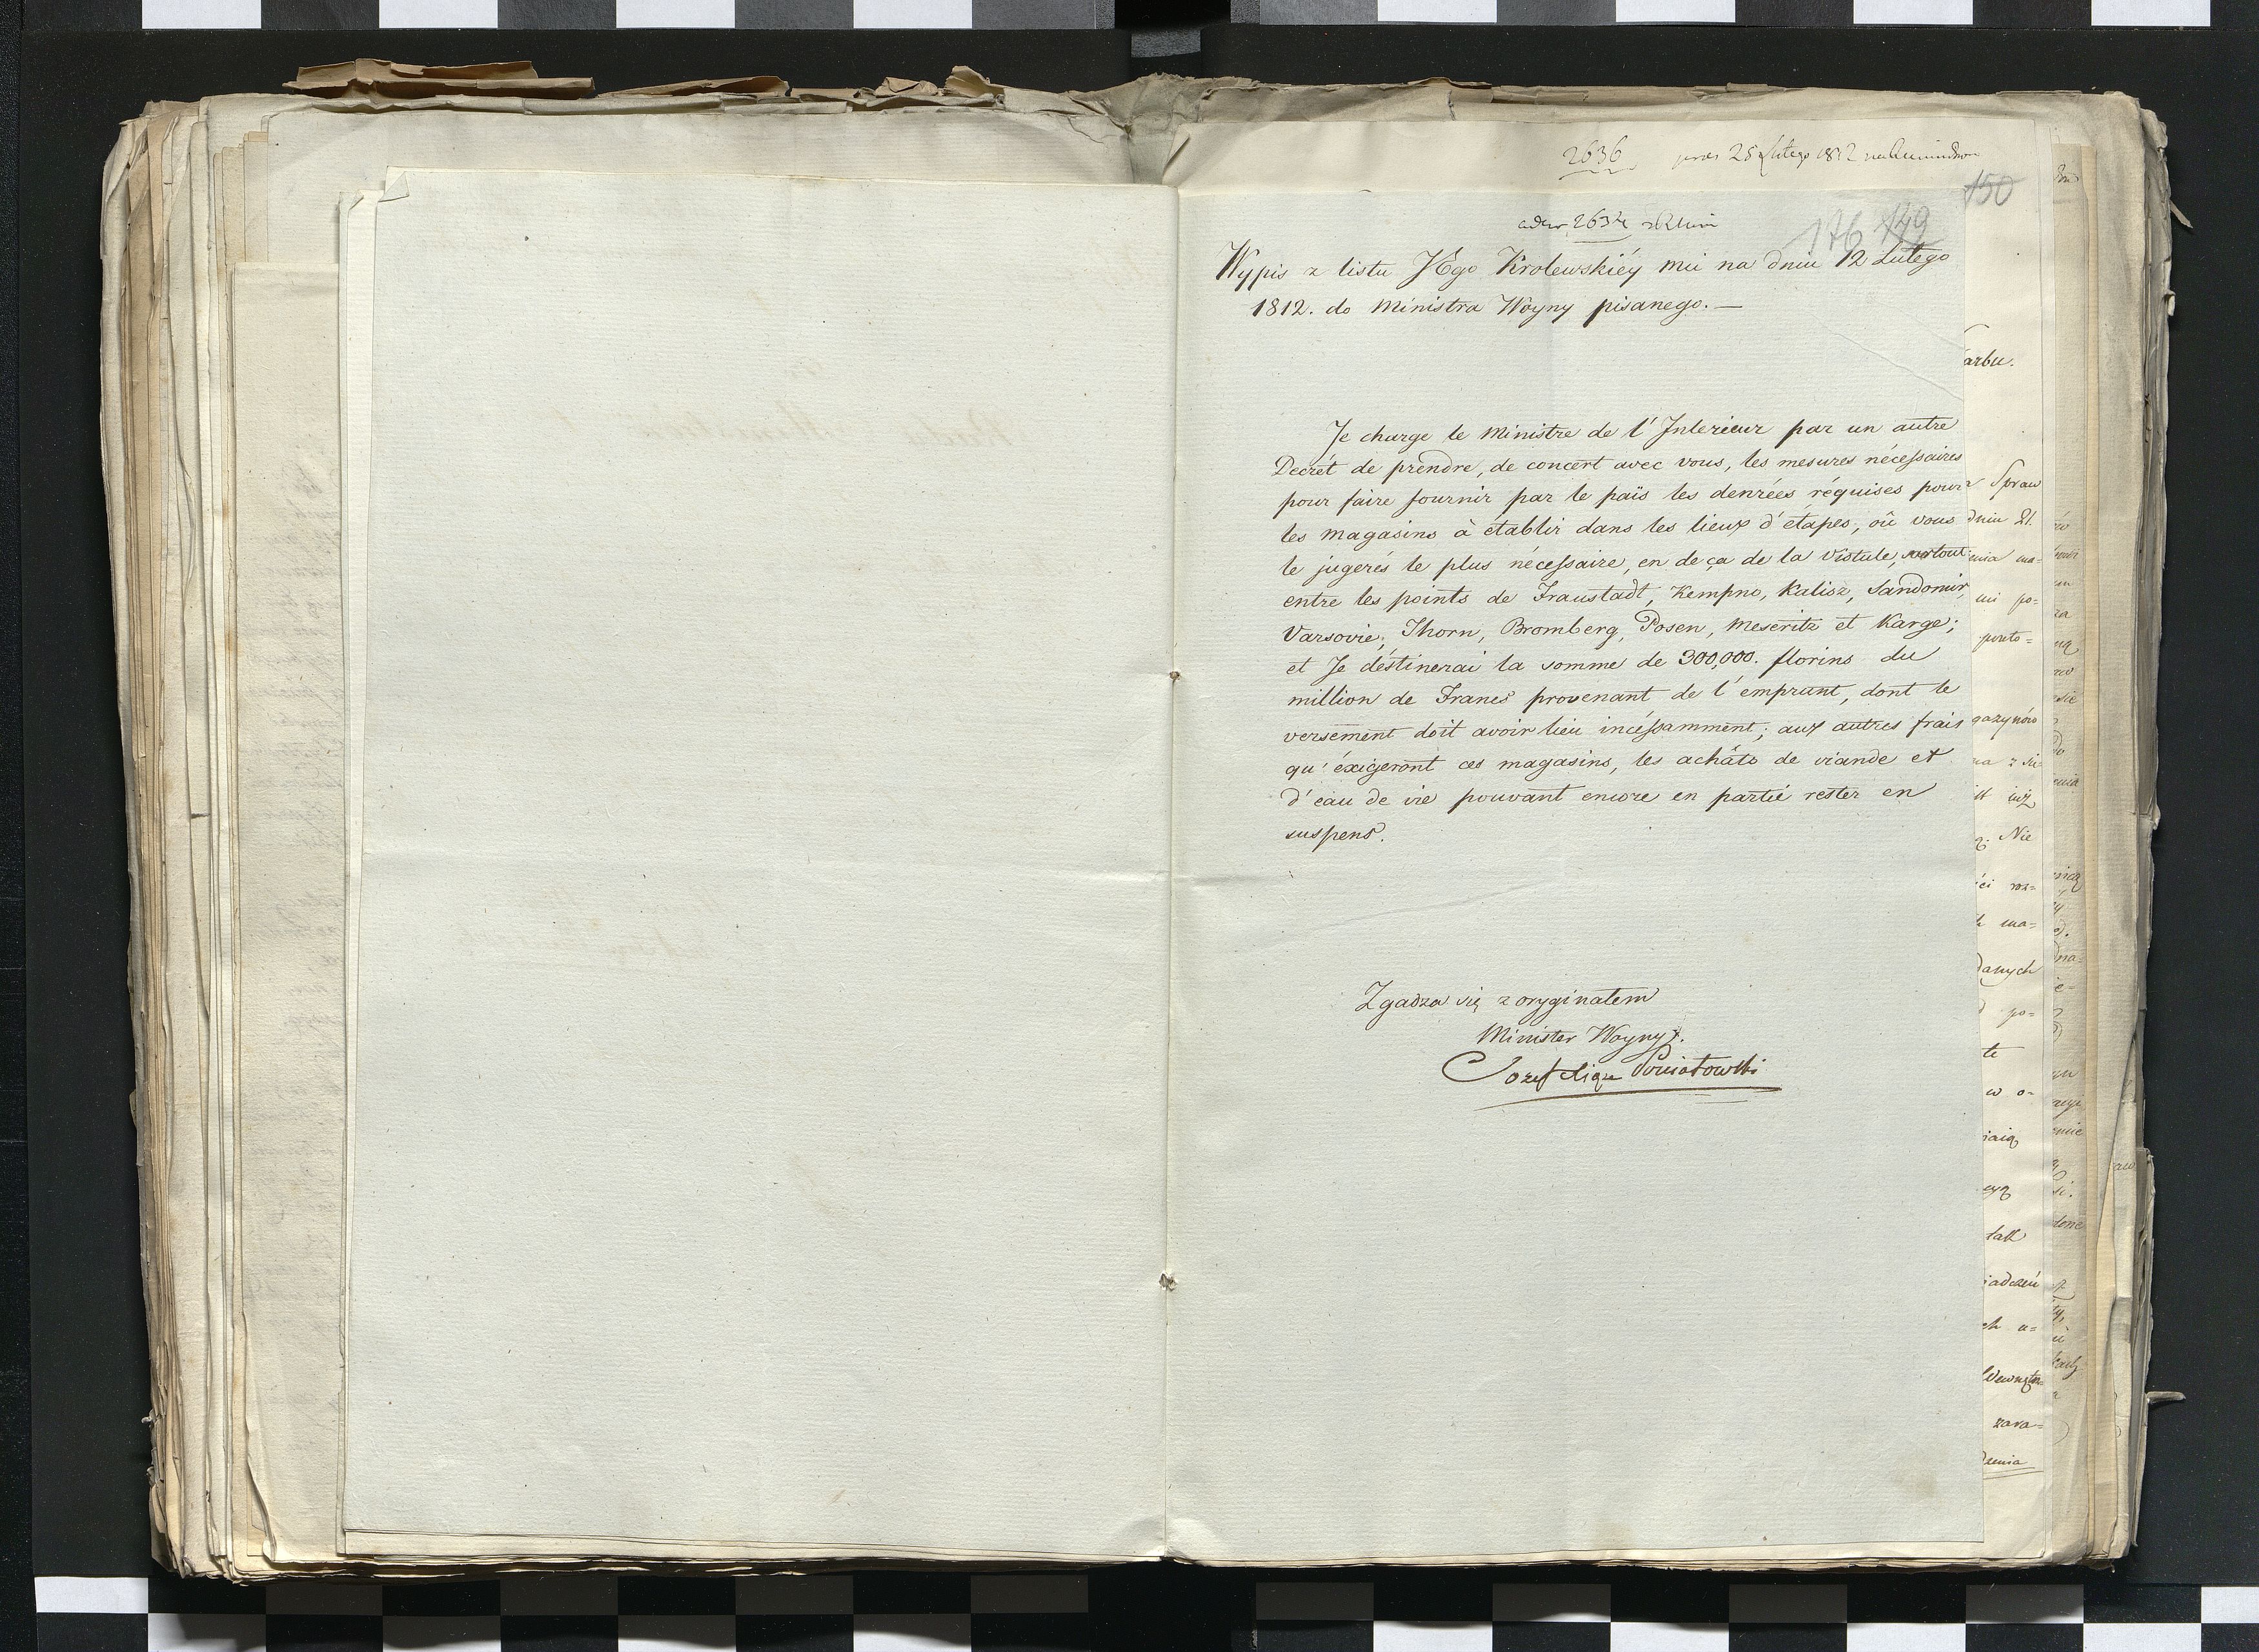 2636 25 Lutego 1812
150
ad nr 2634
176 149
Wypis z listu JEgo Krolewskiéy Mci na dniu 12 Lutego
1812. do Ministra Woyny pisanego. —
Je charge le Ministre de l'Interieur par un autre
Decrét de prendre, de concert avec vous, les mesures nécessaires
pour faire fournir par le païs les denrées réquises pour
les magasins à etablir dans les lieux d'étapes, où vous
le jugerés le plus nécessaire, en de ça de la Vistule, surtout
entre les points de Fraustadt, Kempno, Kalisz, Sandomir,
Varsovie, Thorn, Bromberg, Posen, Meseritz et Karge;
et Je déstinerai la somme de 300,000. florins du
million de Francs provenant de l'emprunt, dont le
versement doit avoir lieu incéssamment; aux autres frais
qu'éxigeront ces magasins, les achâts de viande et
d'eau de vie pouvant encore en partié rester en
suspens.
Zgadza się z oryginałem
Minister Woyny.
Jozef Xiąże Poniatowski
arbu.
Spraw
dniu 21.
gazynów
iuż
Nie
danych
po=
te
w o=
tak
iadczeń
ch u=
Wewnętrz=
zara=
dzenia